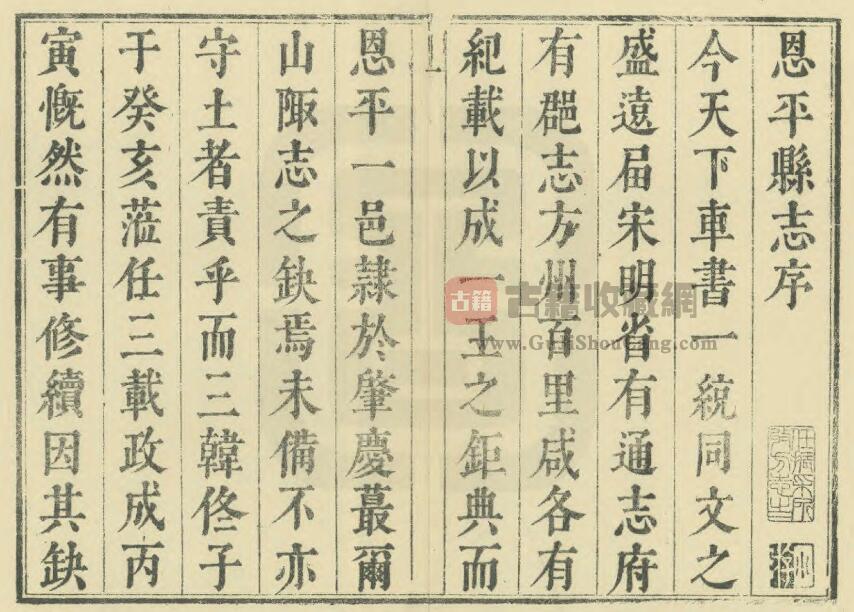 恩平縣志序
今天下車書一統同文之
盛遠届宋明省有通志府
有郡志方州百里咸各有
紀載以成一王之鉅典而
恩平一邑隸於肇慶蕞爾
山陬志之缺焉未備不亦
守土者責乎而三韓佟子
于癸亥蒞任三載政成丙
寅慨然有事修續因其缺
古籍 古籍收藏網
www.GuJiShouCang.com